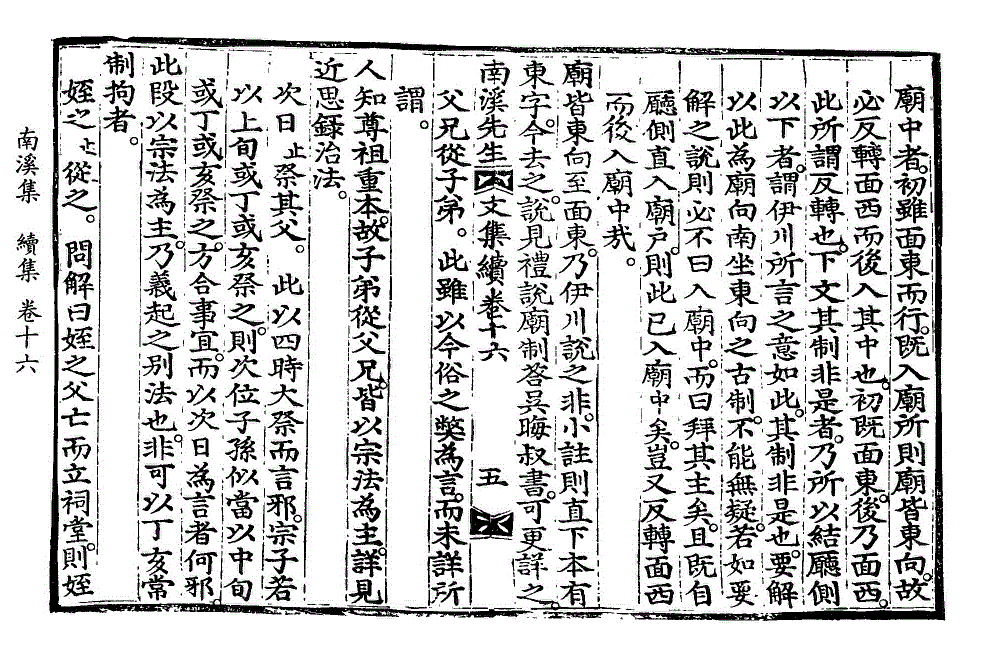 廟中者。初雖面東而行。既入廟所則廟皆東向。故
必反轉面西而後入其中也。初既面東。後乃面西。
此所謂反轉也。下文其制非是者。乃所以結廳側
以下者。謂伊川所言之意如此。其制非是也。要解
以此為廟向南坐東向之古制。不能無疑。若如要
解之說則必不曰入廟中。而曰拜其主矣。且既自
廳側直入廟戶。則此已入廟中矣。豈又反轉面西
而後入廟中哉。
廟皆東向至面東。乃伊川說之非。小註則直下本有
東字。今去之。說見禮說廟制答吳晦叔書。可更詳之。
南溪先生文集續卷十六 五
父兄從子弟。此雖以今俗之獘為言。而未詳所
謂。
人知尊祖重本。故子弟從父兄。皆以宗法為主。詳見
近思錄治法。
次日止祭其父。此以四時大祭而言邪。宗子若
以上旬或丁或亥祭之。則次位子孫似當以中旬
或丁或亥祭之。方合事宜。而以次日為言者何邪。
此段以宗法為主。乃義起之别法也。非可以丁亥常
制拘者。
姪之止從之。問解曰姪之父亡而立祠堂。則姪
南溪集 續集 卷十六